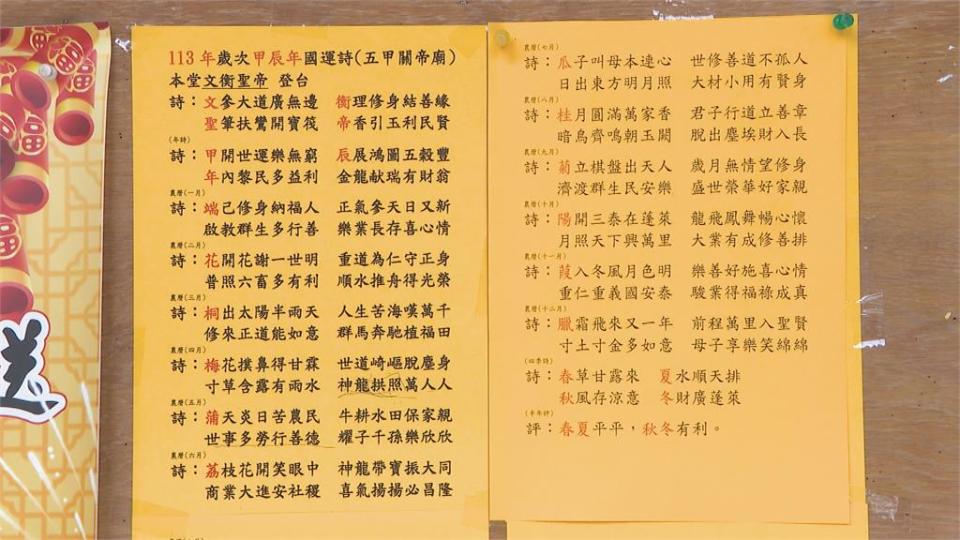 113年歲次甲辰年國運詩(五甲關帝廟)
本堂文衡聖帝 登台
詩：文參大道廣無邊 衡理修身結善緣
聖筆扶鸞開寶筏 帝香引玉利民賢
(年詩)
詩：甲開世運樂無窮 辰展鴻圖五穀豐
年內黎民多益利 金龍献瑞有財翁
農曆(一月)
詩：端己修身納福人 正氣參天日又新
啟教群生多行善 樂業長存喜心情
農曆(二月)
詩：花開花謝一世明 重道為仁守正身
普照六畜多有利 順水推舟得光榮
農曆(三月)
詩：桐出太陽半雨天 人生苦海嘆萬千
修來正道能如意 群馬奔馳植福田
農曆(四月)
詩：梅花撲鼻得甘霖 世道崎嶇脫塵身
寸草含露有雨水 神龍拱照萬人人
農曆(五月)
詩：蒲天炎日苦農民 牛耕水田保家親
世事多勞行善德 耀子千孫樂欣欣
農曆(六月)
詩：荔枝花開笑眼中 神龍帶寶振大同
商業大進安社稷 喜氣揚揚必昌隆
農曆(七月)
詩：瓜子叫母本連心 世修善道不孤人
日出東方明月照 大材小用有賢身
農曆(八月)
詩：桂月圓滿萬家香 君子行道立善章
暗鳥齊鳴朝玉闕 脫出塵埃財八長
農曆(九月)
詩：菊立棋盤出天人 歲月無情望修身
濟渡群生民安樂 盛世榮華好家親
農曆(十月)
詩：陽開三泰在蓬萊 龍飛鳳舞暢心懷
月照天下興萬里 大業有成修善排
農曆(十一月)
詩：葭入冬風月色明 樂善好施喜心情
重仁重義國安泰 駿業得福祿成真
農曆(十二月)
詩：臘霜飛來又一年 前程萬里入聖賢
寸土寸金多如意 母子享樂笑綿綿
(四季詩)
詩：春草甘露來 夏水順天排
秋風存涼意 冬財廣蓬萊
(半年評)
評：春夏平平，秋冬有利。
福
福
福
送